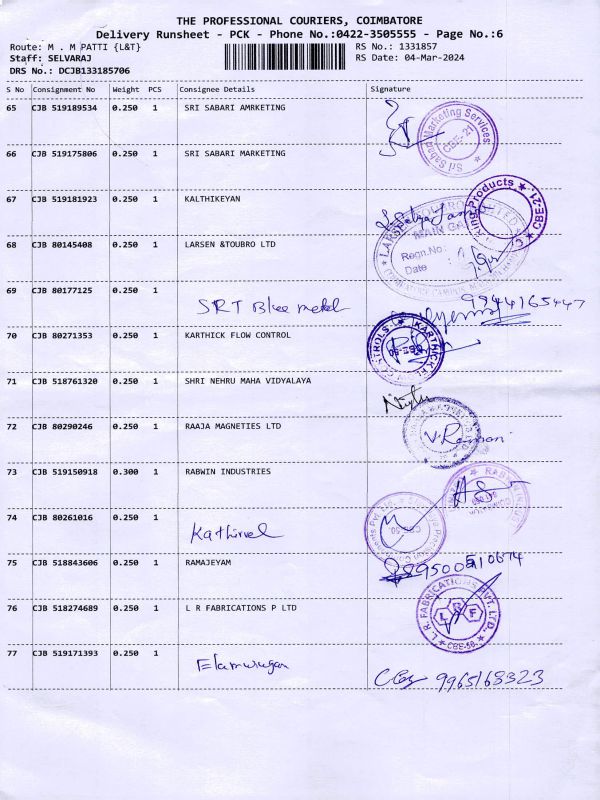 THE PROFESSIONAL COURIERS, COIMBATORE
Delivery Runsheet - PCK - Phone No.:0422-3505555 - Page No.:6
Route: M . M PATTI {L&T} RS No.: 1331857
Staff: SELVARAJ RS Date: 04-Mar-2024
DRS No.: DCJB133185706
S No Consignment No Weight PCS Consignee Details Signature
65 CJB 519189534 0.250 1 SRI SABARI AMRKETING
Sri Sabari Marketing Services CBE-21
66 CJB 519175806 0.250 1 SRI SABARI MARKETING
67 CJB 519181923 0.250 1 KALTHIKEYAN
Products CBE-21.
68 CJB 80145408 0.250 1 LARSEN &TOUBRO LTD
MAIN GATE
Regn.No:
Date :
69 CJB 80177125 0.250 1
SRT Blue metal 9944165447
70 CJB 80271353 0.250 1 KARTHICK FLOW CONTROL
KARTHICK
71 CJB 518761320 0.250 1 SHRI NEHRU MAHA VIDYALAYA
72 CJB 80290246 0.250 1 RAAJA MAGNETIES LTD
V. Ramani
73 CJB 519150918 0.300 1 RABWIN INDUSTRIES
74 CJB 80261016 0.250 1
Kathirvel
75 CJB 518843606 0.250 1 RAMAJEYAM
76 CJB 518274689 0.250 1 L R FABRICATIONS P LTD
L.R. FABRICATIONS PVT. LTD.
L R F
CBE-58.
77 CJB 519171393 0.250 1
Elamurugan
9965168323